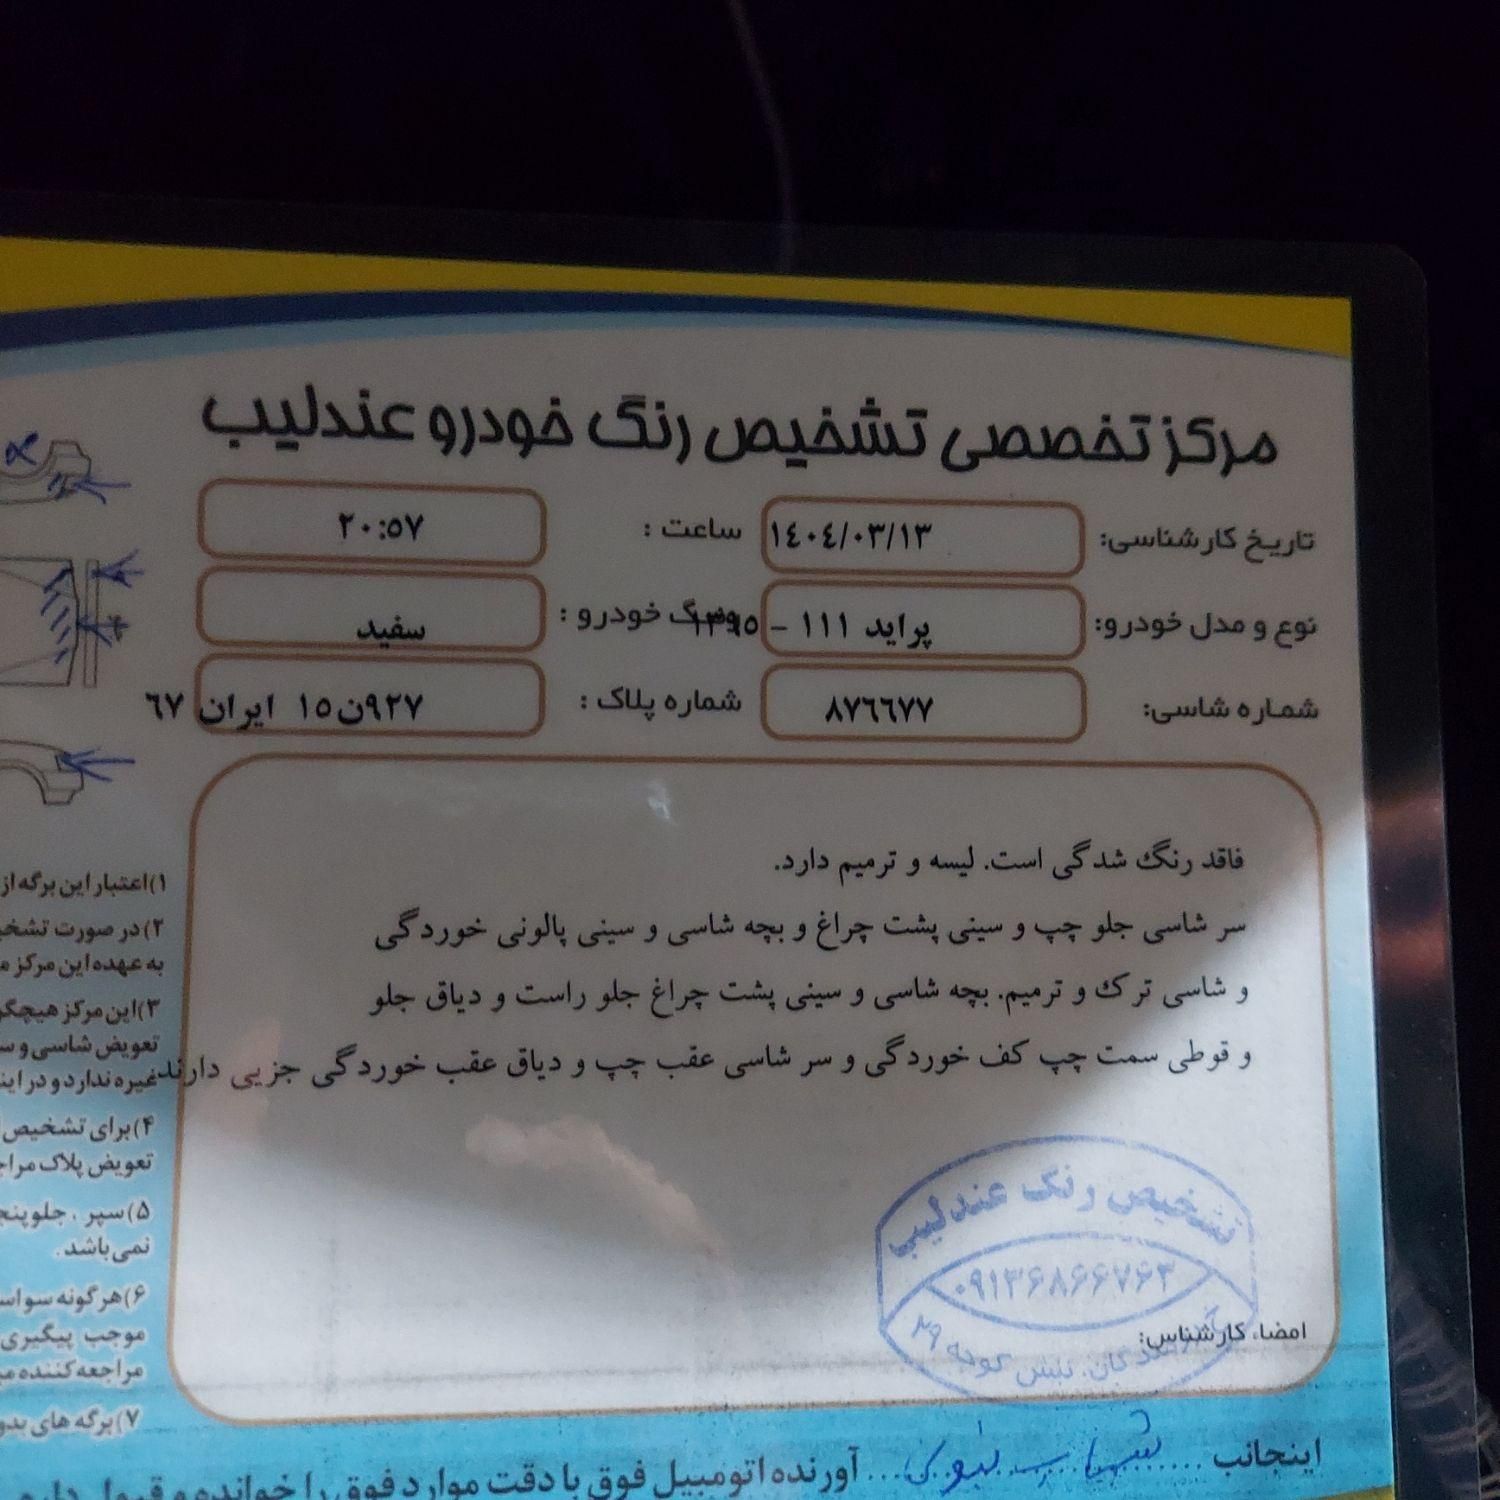 مرکز تخصصی تشخیص رنگ خودرو عندلیب
تاریخ کارشناسی: ۱٤۰٤/۰۳/۱۳ ساعت : ۲۰:۵۷
نوع و مدل خودرو: پراید ۱۱۱ - ۱۳۹۵ رنگ خودرو : سفید
شماره شاسی: ۸۷٦٦۷۷ شماره پلاک : ۹۲۷ن۱۵ ایران ٦۷
فاقد رنگ شدگی است. لیسه و ترمیم دارد.
سر شاسی جلو چپ و سینی پشت چراغ و بچه شاسی و سینی پالونی خوردگی
و شاسی ترک و ترمیم. بچه شاسی و سینی پشت چراغ جلو راست و دیاق جلو
و قوطی سمت چپ کف خوردگی و سر شاسی عقب چپ و دیاق عقب خوردگی جزیی دارند
تشخیص رنگ عندلیب
۰۹۱۳۶۸۶۶۷۶۳
نبش کوچه ۲۹
امضاء کارشناس:
۱)اعتبار این برگه از
۲)در صورت تشخی
به عهده این مرکز م
۳)این مرکز هیچگو
تعویض شاسی و س
غیره ندارد و در این
۴)برای تشخیص
تعویض پلاک مراج
۵)سپر ، جلوپنج
نمی‌باشد.
۶)هرگونه سواس
موجب پیگیری
مراجعه‌کننده م
۷)برگه های بدو
اینجانب ........ آورنده اتومبیل فوق با دقت موارد فوق را خوانده و قبول دارم